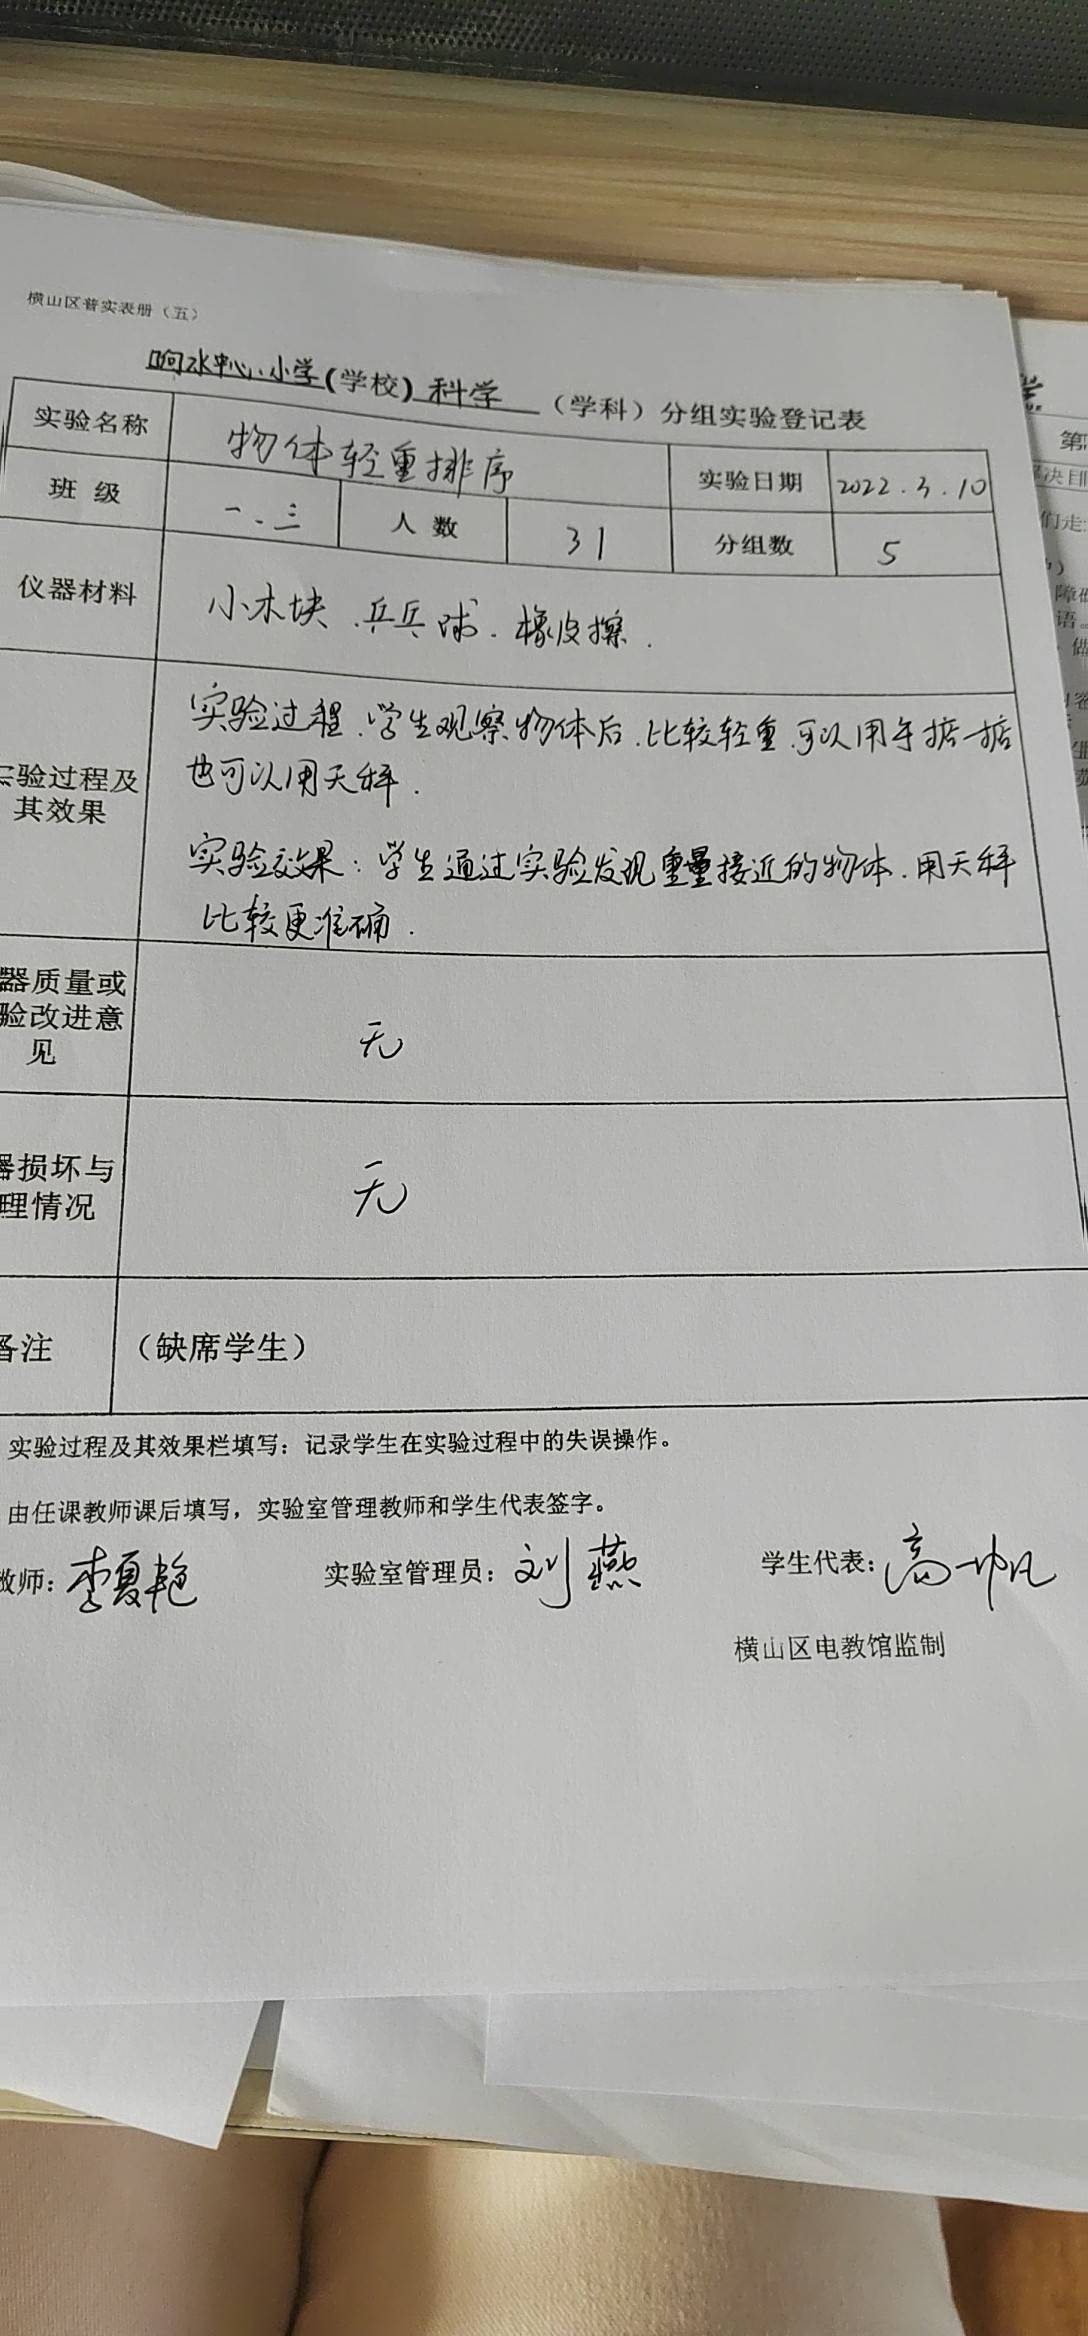 横山区普实表册（五）
响水中心小学(学校) 科学 （学科）分组实验登记表
实验名称 物体轻重排序 实验日期 2022.3.10
班 级 一.三 人 数 31 分组数 5
仪器材料 小木块.乒乓球.橡皮擦.
实验过程.学生观察物体后.比较轻重.可以用手掂一掂
也可以用天秤.
验过程及
其效果
实验效果：学生通过实验发现重量接近的物体.用天秤
比较更准确.
器质量或
验改进意
见
无
器损坏与
理情况
无
备注 （缺席学生）
实验过程及其效果栏填写：记录学生在实验过程中的失误操作。
由任课教师课后填写，实验室管理教师和学生代表签字。
教师：李夏艳 实验室管理员：刘燕 学生代表：高一帆
横山区电教馆监制
第
决目
们走
障碍
语。